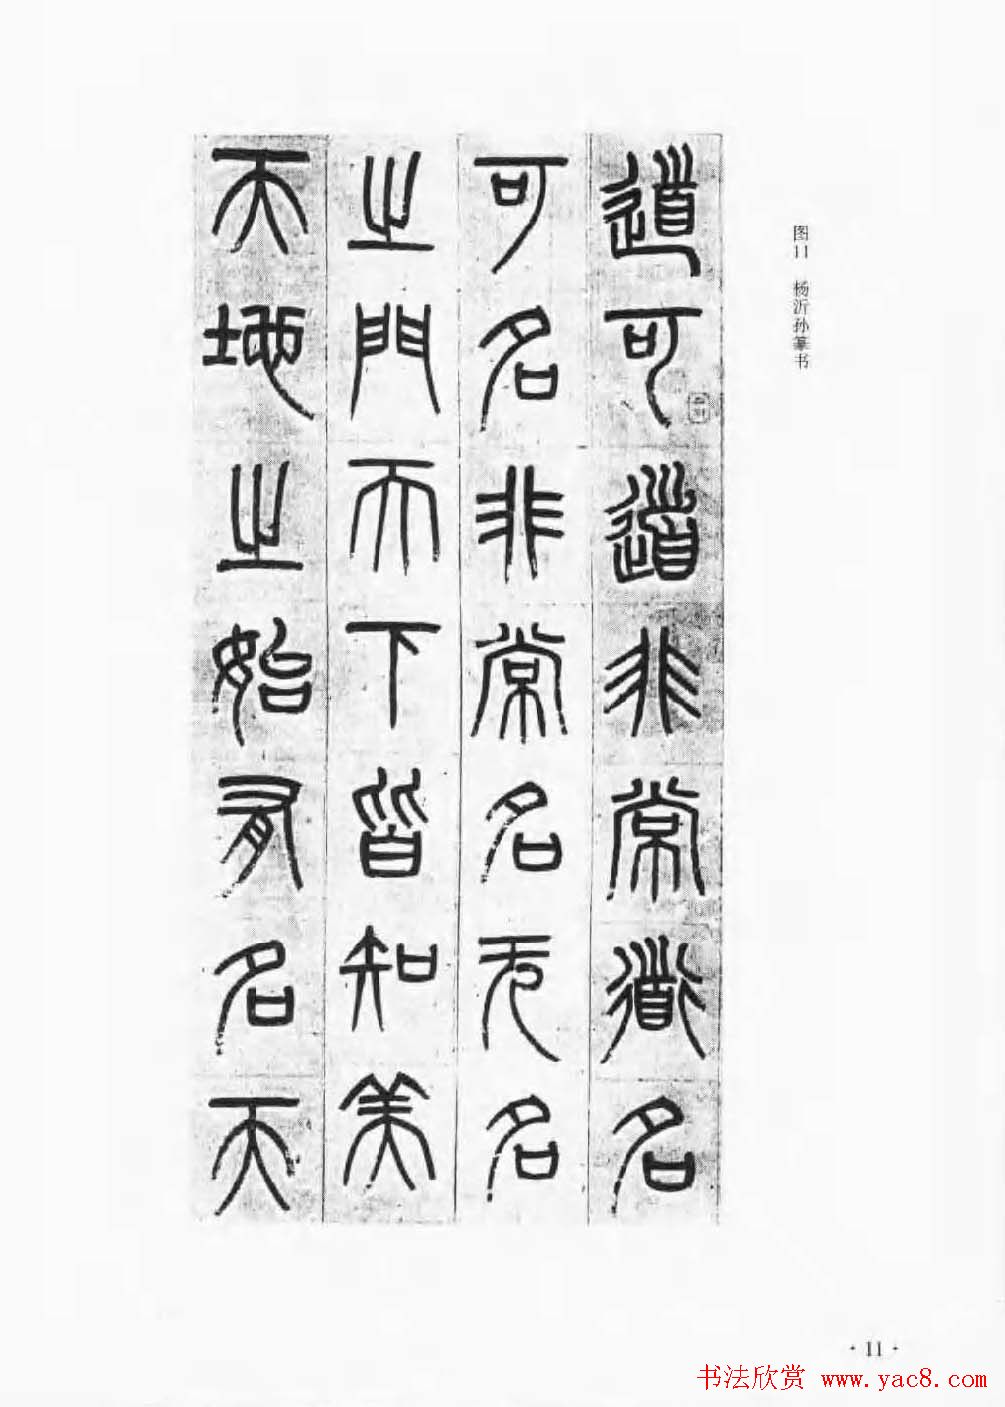 图11 杨沂孙篆书
道可道非常道名
可名非常名无名
之門天下皆知美
天地之始有名天
· 11 ·
书法欣赏 www.yac8.com